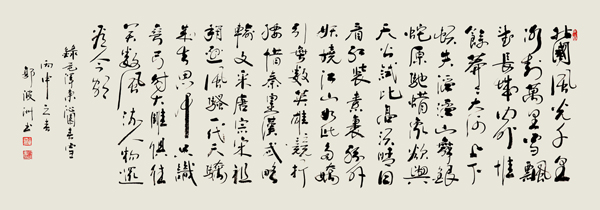 北國風光千里
冰封萬里雪飄
望長城內外惟
餘莽莽大河上下
頓失滔滔山舞銀
蛇原馳蠟象欲與
天公試比高須晴日
看紅裝素裹分外
妖嬈江山如此多嬌
引無數英雄競折
腰惜秦皇漢武略
輸文采唐宗宋祖
稍遜風騷一代天驕
成吉思汗只識
彎弓射大雕俱往
矣數風流人物還
看今朝
錄毛澤東沁園春雪
丙申之春
鄭波洲書